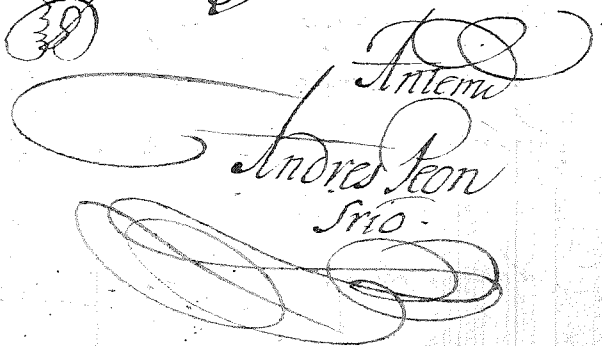 Antemi
Andres Peon
Srio.